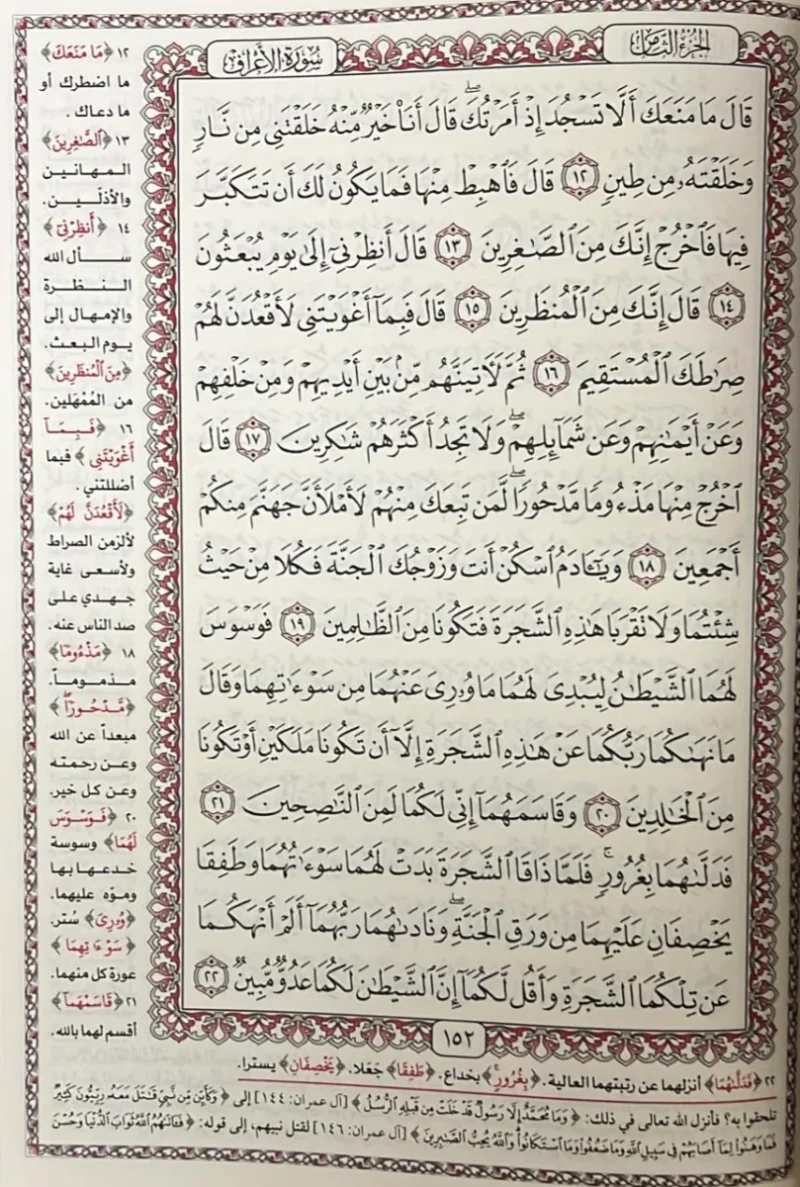 الجزء الثامن
سورة الأعراف
قَالَ مَا مَنَعَكَ أَلَّا تَسْجُدَ إِذْ أَمَرْتُكَ ۖ قَالَ أَنَا۠ خَيْرٌ مِّنْهُ خَلَقْتَنِى مِن نَّارٍ
وَخَلَقْتَهُۥ مِن طِينٍ ١٢ قَالَ فَٱهْبِطْ مِنْهَا فَمَا يَكُونُ لَكَ أَن تَتَكَبَّرَ
فِيهَا فَٱخْرُجْ إِنَّكَ مِنَ ٱلصَّٰغِرِينَ ١٣ قَالَ أَنظِرْنِىٓ إِلَىٰ يَوْمِ يُبْعَثُونَ
١٤ قَالَ إِنَّكَ مِنَ ٱلْمُنظَرِينَ ١٥ قَالَ فَبِمَآ أَغْوَيْتَنِى لَأَقْعُدَنَّ لَهُمْ
صِرَٰطَكَ ٱلْمُسْتَقِيمَ ١٦ ثُمَّ لَأَتِيَنَّهُم مِّنۢ بَيْنِ أَيْدِيهِمْ وَمِنْ خَلْفِهِمْ
وَعَنْ أَيْمَٰنِهِمْ وَعَن شَمَآئِلِهِمْ ۖ وَلَا تَجِدُ أَكْثَرَهُمْ شَٰكِرِينَ ١٧ قَالَ
ٱخْرُجْ مِنْهَا مَذْءُومًا مَّدْحُورًا ۖ لَّمَن تَبِعَكَ مِنْهُمْ لَأَمْلَأَنَّ جَهَنَّمَ مِنكُمْ
أَجْمَعِينَ ١٨ وَيَٰٓـَٔادَمُ ٱسْكُنْ أَنتَ وَزَوْجُكَ ٱلْجَنَّةَ فَكُلَا مِنْ حَيْثُ
شِئْتُمَا وَلَا تَقْرَبَا هَٰذِهِ ٱلشَّجَرَةَ فَتَكُونَا مِنَ ٱلظَّٰلِمِينَ ١٩ فَوَسْوَسَ
لَهُمَا ٱلشَّيْطَٰنُ لِيُبْدِىَ لَهُمَا مَا وُۥرِىَ عَنْهُمَا مِن سَوْءَٰتِهِمَا وَقَالَ
مَا نَهَىٰكُمَا رَبُّكُمَا عَنْ هَٰذِهِ ٱلشَّجَرَةِ إِلَّآ أَن تَكُونَا مَلَكَيْنِ أَوْ تَكُونَا
مِنَ ٱلْخَٰلِدِينَ ٢٠ وَقَاسَمَهُمَآ إِنِّى لَكُمَا لَمِنَ ٱلنَّٰصِحِينَ ٢١
فَدَلَّىٰهُمَا بِغُرُورٍ ۚ فَلَمَّا ذَاقَا ٱلشَّجَرَةَ بَدَتْ لَهُمَا سَوْءَٰتُهُمَا وَطَفِقَا
يَخْصِفَانِ عَلَيْهِمَا مِن وَرَقِ ٱلْجَنَّةِ ۖ وَنَادَىٰهُمَا رَبُّهُمَآ أَلَمْ أَنْهَكُمَا
عَن تِلْكُمَا ٱلشَّجَرَةِ وَأَقُل لَّكُمَآ إِنَّ ٱلشَّيْطَٰنَ لَكُمَا عَدُوٌّ مُّبِينٌ ٢٢
١٥٢
١٢ ﴿مَا مَنَعَكَ﴾
ما اضطرك أو
ما دعاك .
١٣ ﴿ٱلصَّٰغِرِينَ﴾
المهانين
والأذلّين.
١٤ ﴿أَنظِرْنِىٓ﴾
سأل الله
النظرة
والإمهال إلى
يوم البعث.
﴿مِنَ ٱلْمُنظَرِينَ﴾
من المُمْهَلين.
١٦ ﴿فَبِمَآ
أَغْوَيْتَنِى﴾ فبما
أضللتني .
﴿لَأَقْعُدَنَّ لَهُمْ﴾
لألزمن الصراط
ولأسعى غاية
جهدي على
صد الناس عنه.
١٨ ﴿مَذْءُومًا﴾
مذموماً.
﴿مَّدْحُورًا ۖ﴾
مبعداً عن الله
وعن رحمته
وعن كل خير.
٢٠ ﴿فَوَسْوَسَ
لَهُمَا﴾ وسوسة
خدعها بها
وموّه عليهما.
﴿وُۥرِىَ﴾ سُتر.
﴿سَوْءَٰتِهِمَا﴾
عورة كل منهما.
٢١ ﴿قَاسَمَهُمَآ﴾
أقسم لهما بالله.
٢٢ ﴿فَدَلَّىٰهُمَا﴾ أنزلهما عن رتبتهما العالية. ﴿بِغُرُورٍ ۚ﴾ بخداع. ﴿طَفِقَا﴾ جَعَلا. ﴿يَخْصِفَانِ﴾ يسترا.
تلحقوا به؟ فأنزل الله تعالى في ذلك: ﴿وَمَا مُحَمَّدٌ إِلَّا رَسُولٌ قَدْ خَلَتْ مِن قَبْلِهِ ٱلرُّسُلُ﴾ [آل عمران: ١٤٤] إلى ﴿وَكَأَيِّن مِّن نَّبِىٍّ قَٰتَلَ مَعَهُۥ رِبِّيُّونَ كَثِيرٌ
فَمَا وَهَنُوا۟ لِمَآ أَصَابَهُمْ فِى سَبِيلِ ٱللَّهِ وَمَا ضَعُفُوا۟ وَمَا ٱسْتَكَانُوا۟ ۗ وَٱللَّهُ يُحِبُّ ٱلصَّٰبِرِينَ﴾ [آل عمران: ١٤٦] لقتل نبيهم، إلى قوله: ﴿فَـَٔاتَىٰهُمُ ٱللَّهُ ثَوَابَ ٱلدُّنْيَا وَحُسْنَ